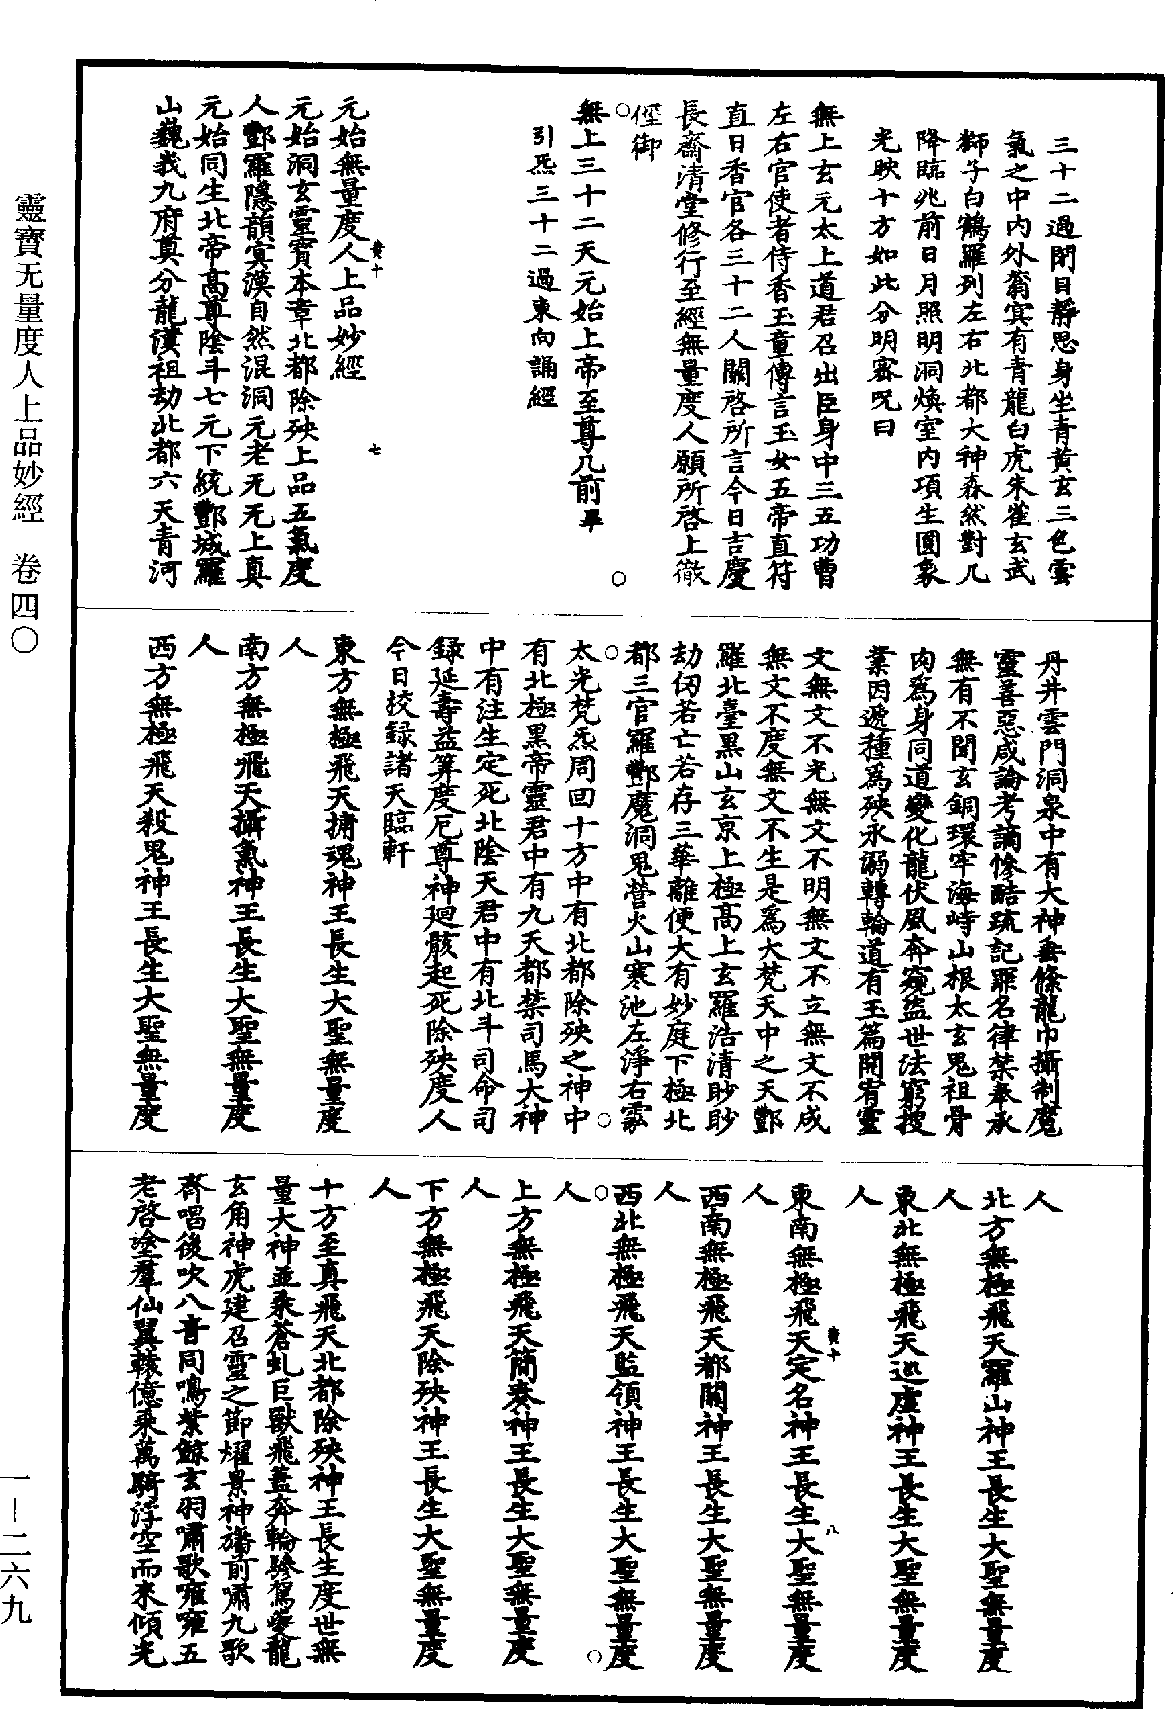 三十二過閉目靜思身坐青黃玄三色雲
氣之中內外蓊冥有青龍白虎朱雀玄武
獅子白鶴羅列左右北都大神森然對几
降臨兆前日月照明洞煥室內項生圓象
光映十方如此分明密呪曰
無上玄元太上道君召出臣身中三五功曹
左右官使者侍香玉童傳言玉女五帝直符
直日香官各三十二人關啓所言今日吉慶
長齋清堂修行至經無量度人願所啓上徹
俓御
無上三十二天元始上帝至尊几前畢
引炁三十二過東向誦經
黃十
七
元始無量度人上品妙經
元始洞玄靈寶本章北都除殃上品五氣度
人酆羅隱韻冥漠自然混洞元老无无上真
元始同生北帝高尊陰斗七元下統酆城羅
山巍峩九府奠分龍漢祖劫北都六天青河
丹井雲門洞泉中有大神垂絛龍巾攝制魔
靈善惡咸論考謫慘酷疏記罪名律禁奉承
無有不聞玄銅環牢海峙山根太玄鬼祖骨
肉爲身同道變化龍伏風奔窺盜世法窮搜
業因遞種爲殃永溺轉輪道有玉篇開宥靈
文無文不光無文不明無文不立無文不成
無文不度無文不生是爲大梵天中之天酆
羅北臺黑山玄京上極高上玄羅浩清眇眇
劫仞若亡若存三華離便大有妙庭下極北
都三官羅酆魔洞鬼營火山寒池左淨右霐
太光梵炁周回十方中有北都除殃之神中
有北極黑帝靈君中有九天都禁司馬大神
中有注生定死北陰天君中有北斗司命司
録延壽益算度厄尊神廻骸起死除殃度人
今日校録諸天臨軒
東方無極飛天擁魂神王長生大聖無量度
人
南方無極飛天攝氣神王長生大聖無量度
人
西方無極飛天殺鬼神王長生大聖無量度
人
北方無極飛天羅山神王長生大聖無量度
人
東北無極飛天巡虛神王長生大聖無量度
人
黃十
八
東南無極飛天定名神王長生大聖無量度
人
西南無極飛天都關神王長生大聖無量度
人
西北無極飛天監領神王長生大聖無量度
人
上方無極飛天簡奏神王長生大聖無量度
人
下方無極飛天除殃神王長生大聖無量度
人
十方至真飛天北都除殃神王長生度世無
量大神並乘蒼虬巨獸飛蓋奔輪驂駕夔龍
玄角神虎建召靈之節耀景神旛前嘯九歌
齊唱後吹八音同鳴紫鯨玄羽嘯歌雍雍五
老啓塗羣仙翼轅億乘萬騎浮空而來傾光
靈寶无量度人上品妙經　卷四〇
一－二六九